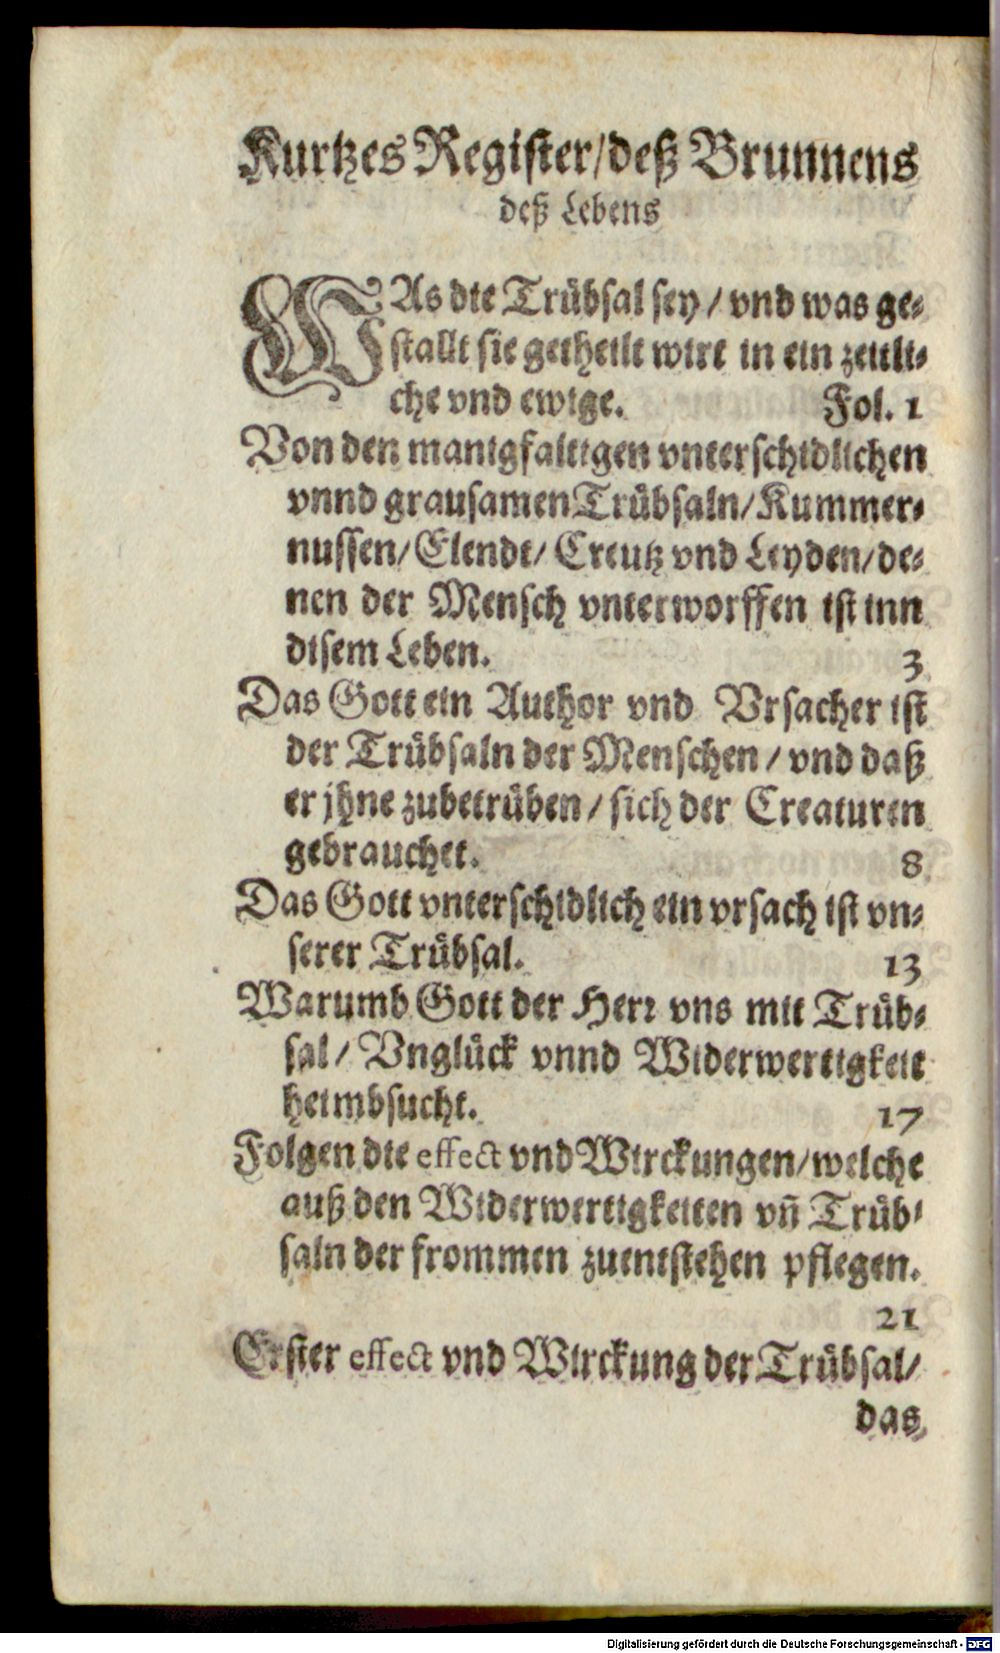 Kurtzes Register/deß Brunnens
deß Lebens
WAs die Trübsal sey / vnd was ge-
stallt sie getheilt wirt in ein zeitli-
che vnd ewige. Fol. 1
Von den manigfaltigen vnterschidlichen
vnnd grausamen Trübsaln/Kummer-
nussen/Elendt/ Creutz vnd Leyden/de-
nen der Mensch vnterworffen ist inn
disem Leben. 3
Das Gott ein Author vnd Vrsacher ist
der Trübsaln der Menschen / vnd daß
er jhne zubetrüben / sich der Creaturen
gebrauchet. 8
Das Gott vnterschidlich ein vrsach ist vn-
serer Trübsal. 13
Warumb Gott der Herr vns mit Trüb-
sal / Vnglück vnnd Widerwertigkeit
heimbsucht. 17
Folgen die effect vnd Wirckungen/welche
auß den Widerwertigkeiten vn̄ Trüb-
saln der frommen zuentstehen pflegen.
21
Erster effect vnd Wirckung der Trübsal/
das
Digitalisierung gefördert durch die Deutsche Forschungsgemeinschaft - DFG